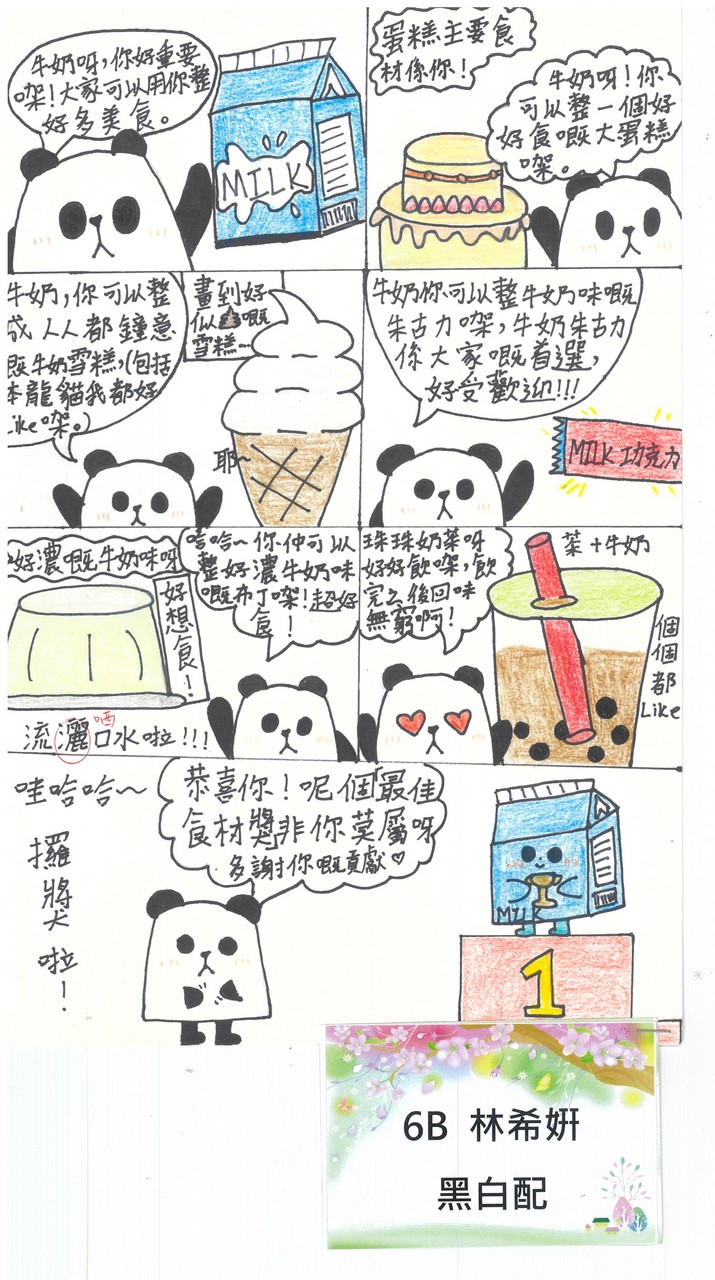 牛奶呀，你好重要
㗎！大家可以用你整
好多美食。
MILK
蛋糕主要食
材係你！
牛奶呀！你
可以整一個好
好食嘅大蛋糕
㗎。
牛奶，你可以整
成人人都鐘意
既牛奶雪糕，(包括
本龍貓我都好
Like㗎。)
畫到好
似💩嘅
雪糕…
耶~
牛奶你可以整牛奶味嘅
朱古力㗎，牛奶朱古力
係大家嘅首選，
好受歡迎!!!
MILK 功克力
好濃嘅牛奶味呀
好想食！
流灑口水啦!!!
哂
哈哈~你仲可以
整好濃牛奶味
嘅布丁㗎！超好
食！
珠珠奶茶呀
好好飲㗎，飲
完之後回味
無窮啊！
茶+牛奶
個個都Like
哇哈哈~
攞獎啦！
恭喜你！呢個最佳
食材獎非你莫屬呀
多謝你嘅貢獻♡
MILK
1
6B 林希姸
黑白配